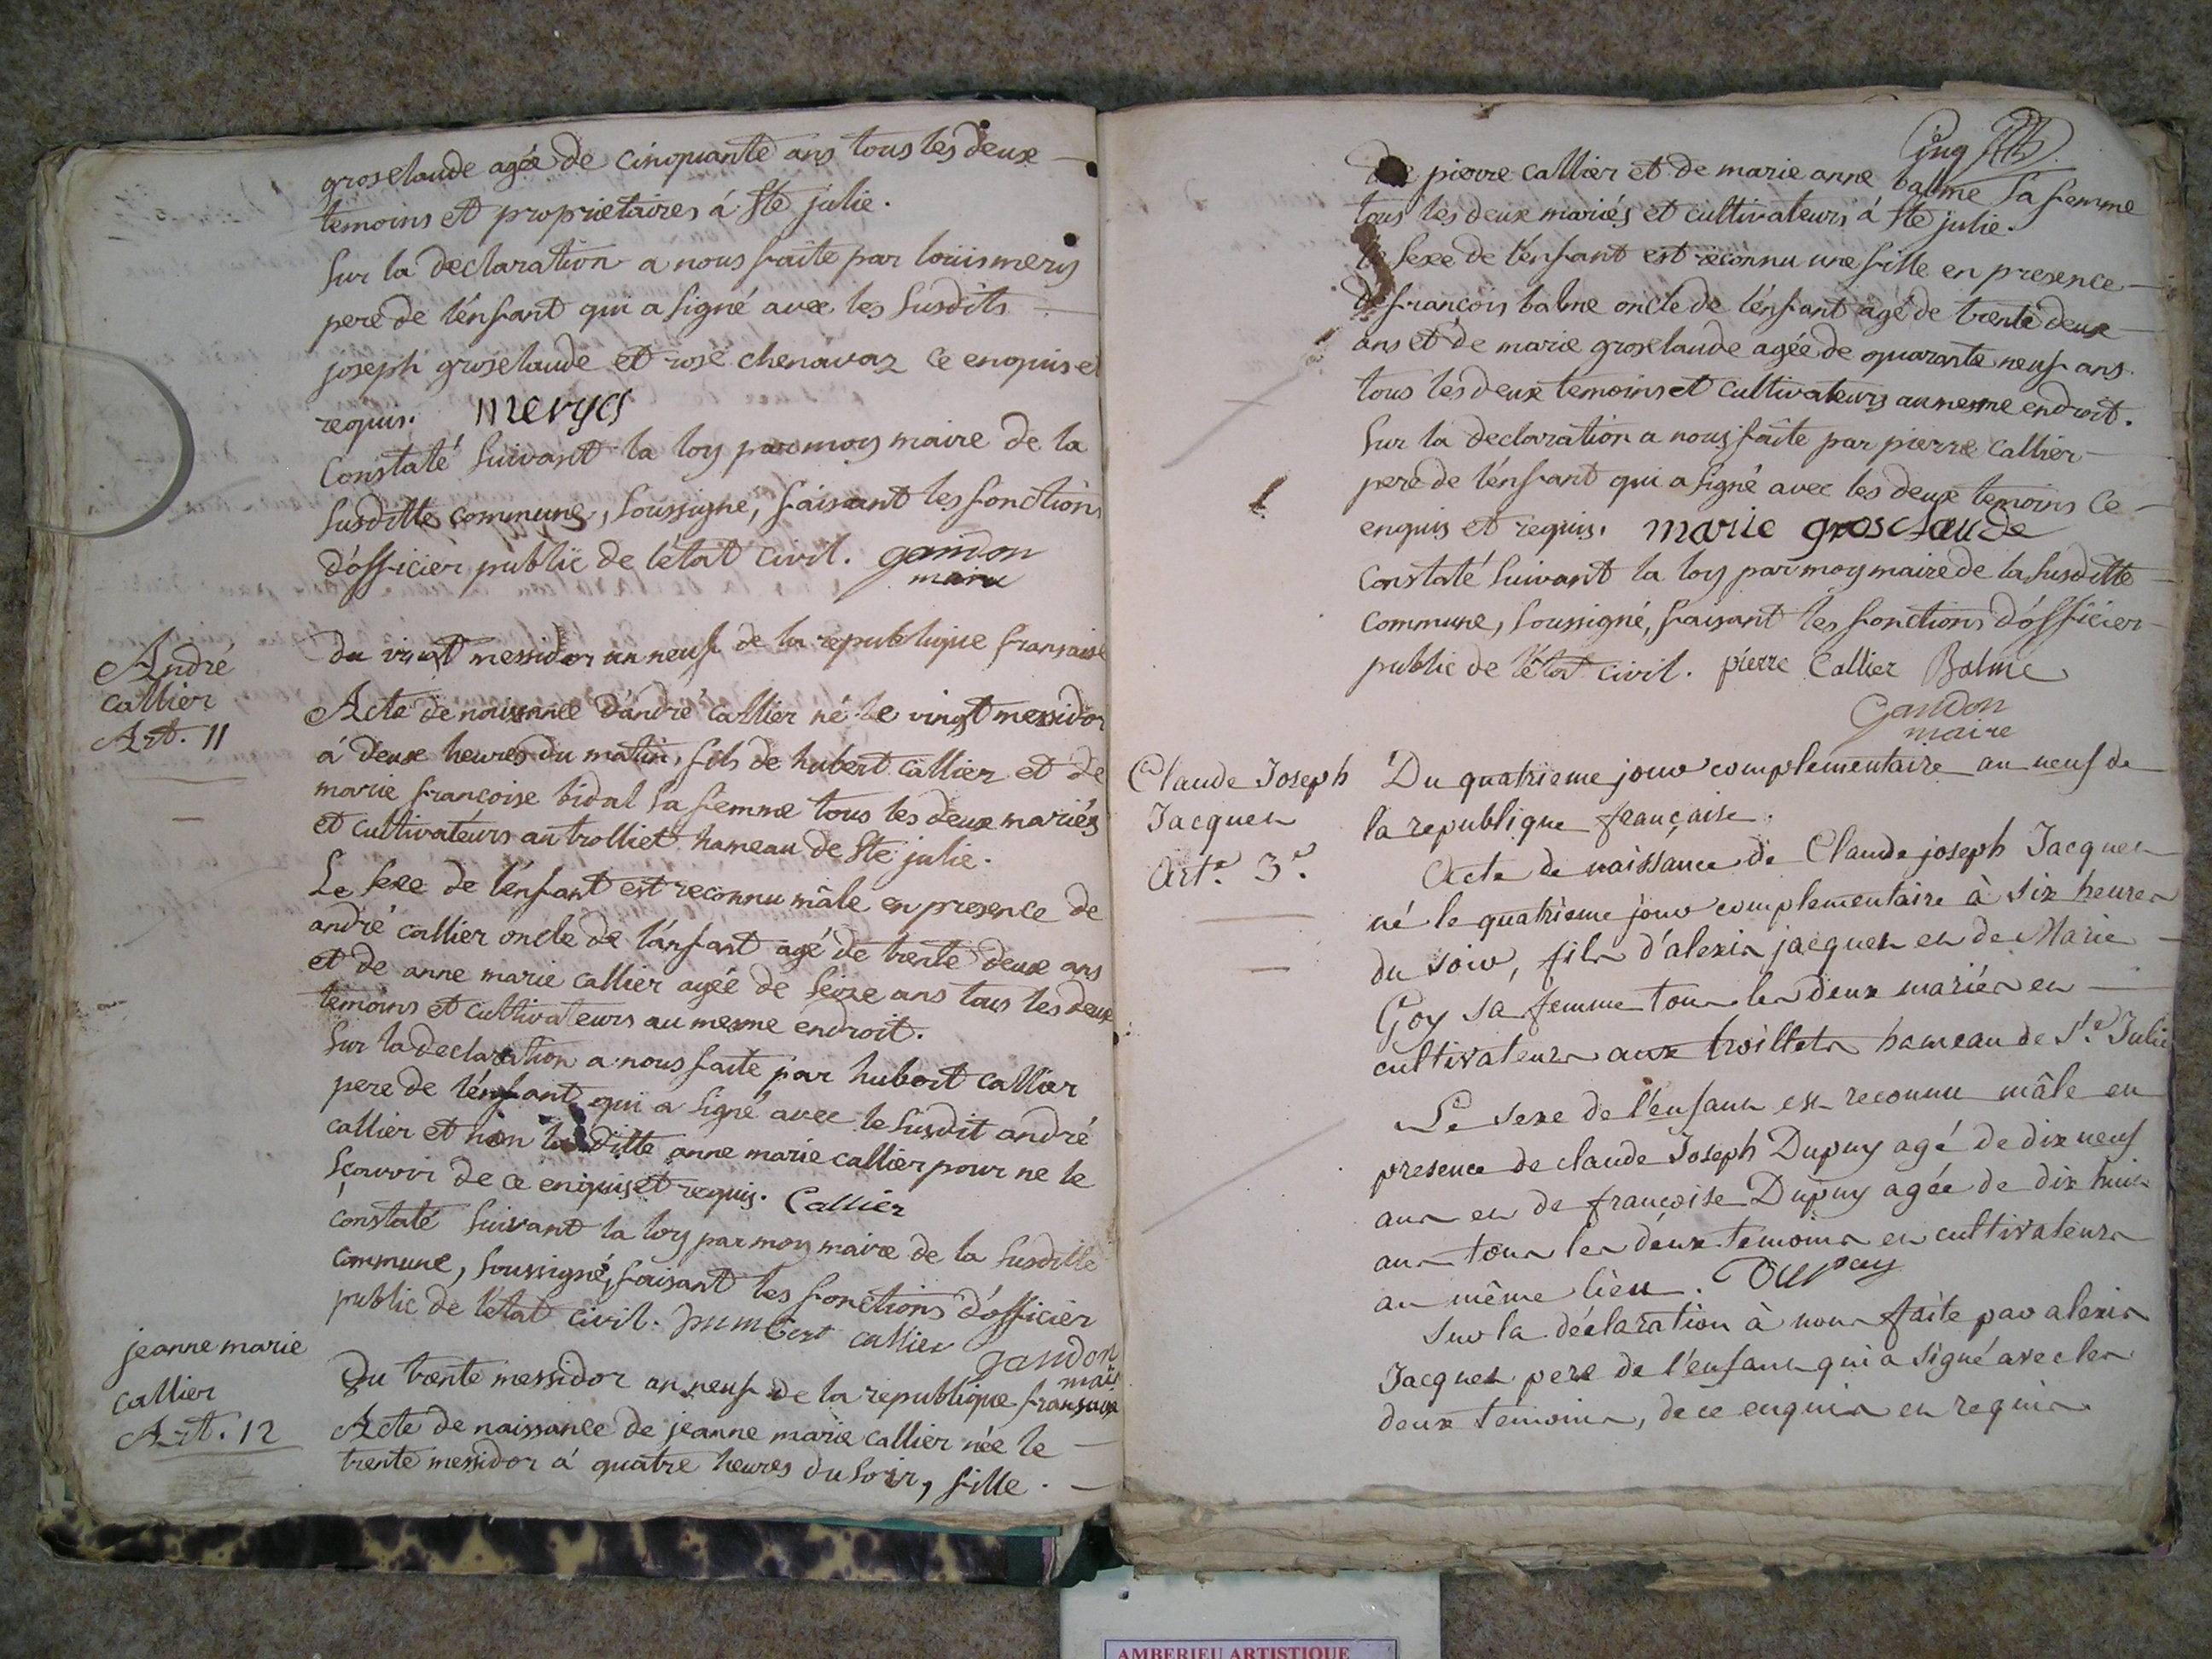 groselaude agée de cinquante ans tous les deux
temoins et proprietaires á Ste julie.
Sur la declaration a nous faite par loüis mery
pere de l'enfant qui a signé avec les susdits
joseph groselaude et rose chenavaz ce enquis et
requis. merys
Constaté suivant la loy par moy maire de la
susditte commune, soussigné, faisant les fonctions
d'officier public de l'état civil. gandon
maire
André
callier
Art. 11
du vingt messidor an neuf de la republique française
Acte de naissance d'andré callier né le vingt messidor
á deux heures du matin, fils de hubert callier et de
marie françoise bidal sa femme tous les deux mariés
et cultivateurs au trolliet hameau de Ste julie.
Le sexe de l'enfant est reconnu mâle en presence de
andré callier oncle de l'anfant agé de trente deux ans
et de anne marie callier agée de seize ans tous les deux
temoins et cultivateurs au mesme endroit.
Sur la declaration a nous faite par hubert callier
pere de l'enfant qui a signé avec le susdit andré
callier et non la ditte anne marie callier pour ne le
sçavoir de ce enquis et requis. Callier
constaté suivant la loy par moy maire de la susditte
commune, soussigné, faisant les fonctions d'officier
public de l'état civil. humbert callier gandon
maire
jeanne marie
callier
Art. 12
Du trente messidor an neuf de la republique française
Acte de naissance de jeanne marie callier née le
trente messidor á quatre heures du soir, fille.
cinq
de pierre callier et de marie anne balme sa femme
tous les deux mariés et cultivateurs á Ste julie.
le sexe de l'enfant est reconnu une fille en presence
de françois balme oncle de l'enfant agé de trente deux
ans et de marie groselaude agée de quarante neuf ans
tous les deux temoins et cultivateurs au mesme endroit.
Sur la declaration a nous faite par pierre callier
pere de l'enfant qui a signé avec les deux temoins ce
enquis et requis. marie grosclaude
constaté suivant la loy par moy maire de la susditte
commune, soussigné, faisant les fonctions d'officier
public de l'état civil. pierre Callier Balme
Gandon
maire
Claude Joseph
Jacquet
Art.e 3.e
Du quatrieme jour complementaire an neuf de
la republique française.
Acte de naissance de Claude joseph Jacquet
né le quatrieme jour complementaire à six heures
du soir, fils d'alexis jacquet et de Marie
Goy sa femme tous les deux mariés et
cultivateurs aux troillets hameau de S.te Julie
Le sexe de l'enfant est reconnu mâle en
presence de claude Joseph Dupuy agé de dix neuf
ans et de françoise Dupuy agée de dix huit
ans tous les deux temoins et cultivateurs
au même lieu. Dupuy
sur la déclaration à nous faite par alexis
Jacquet pere de l'enfant qui a signé avec les
deux témoins, de ce enquis et requis.
AMBERIEU ARTISTIQUE